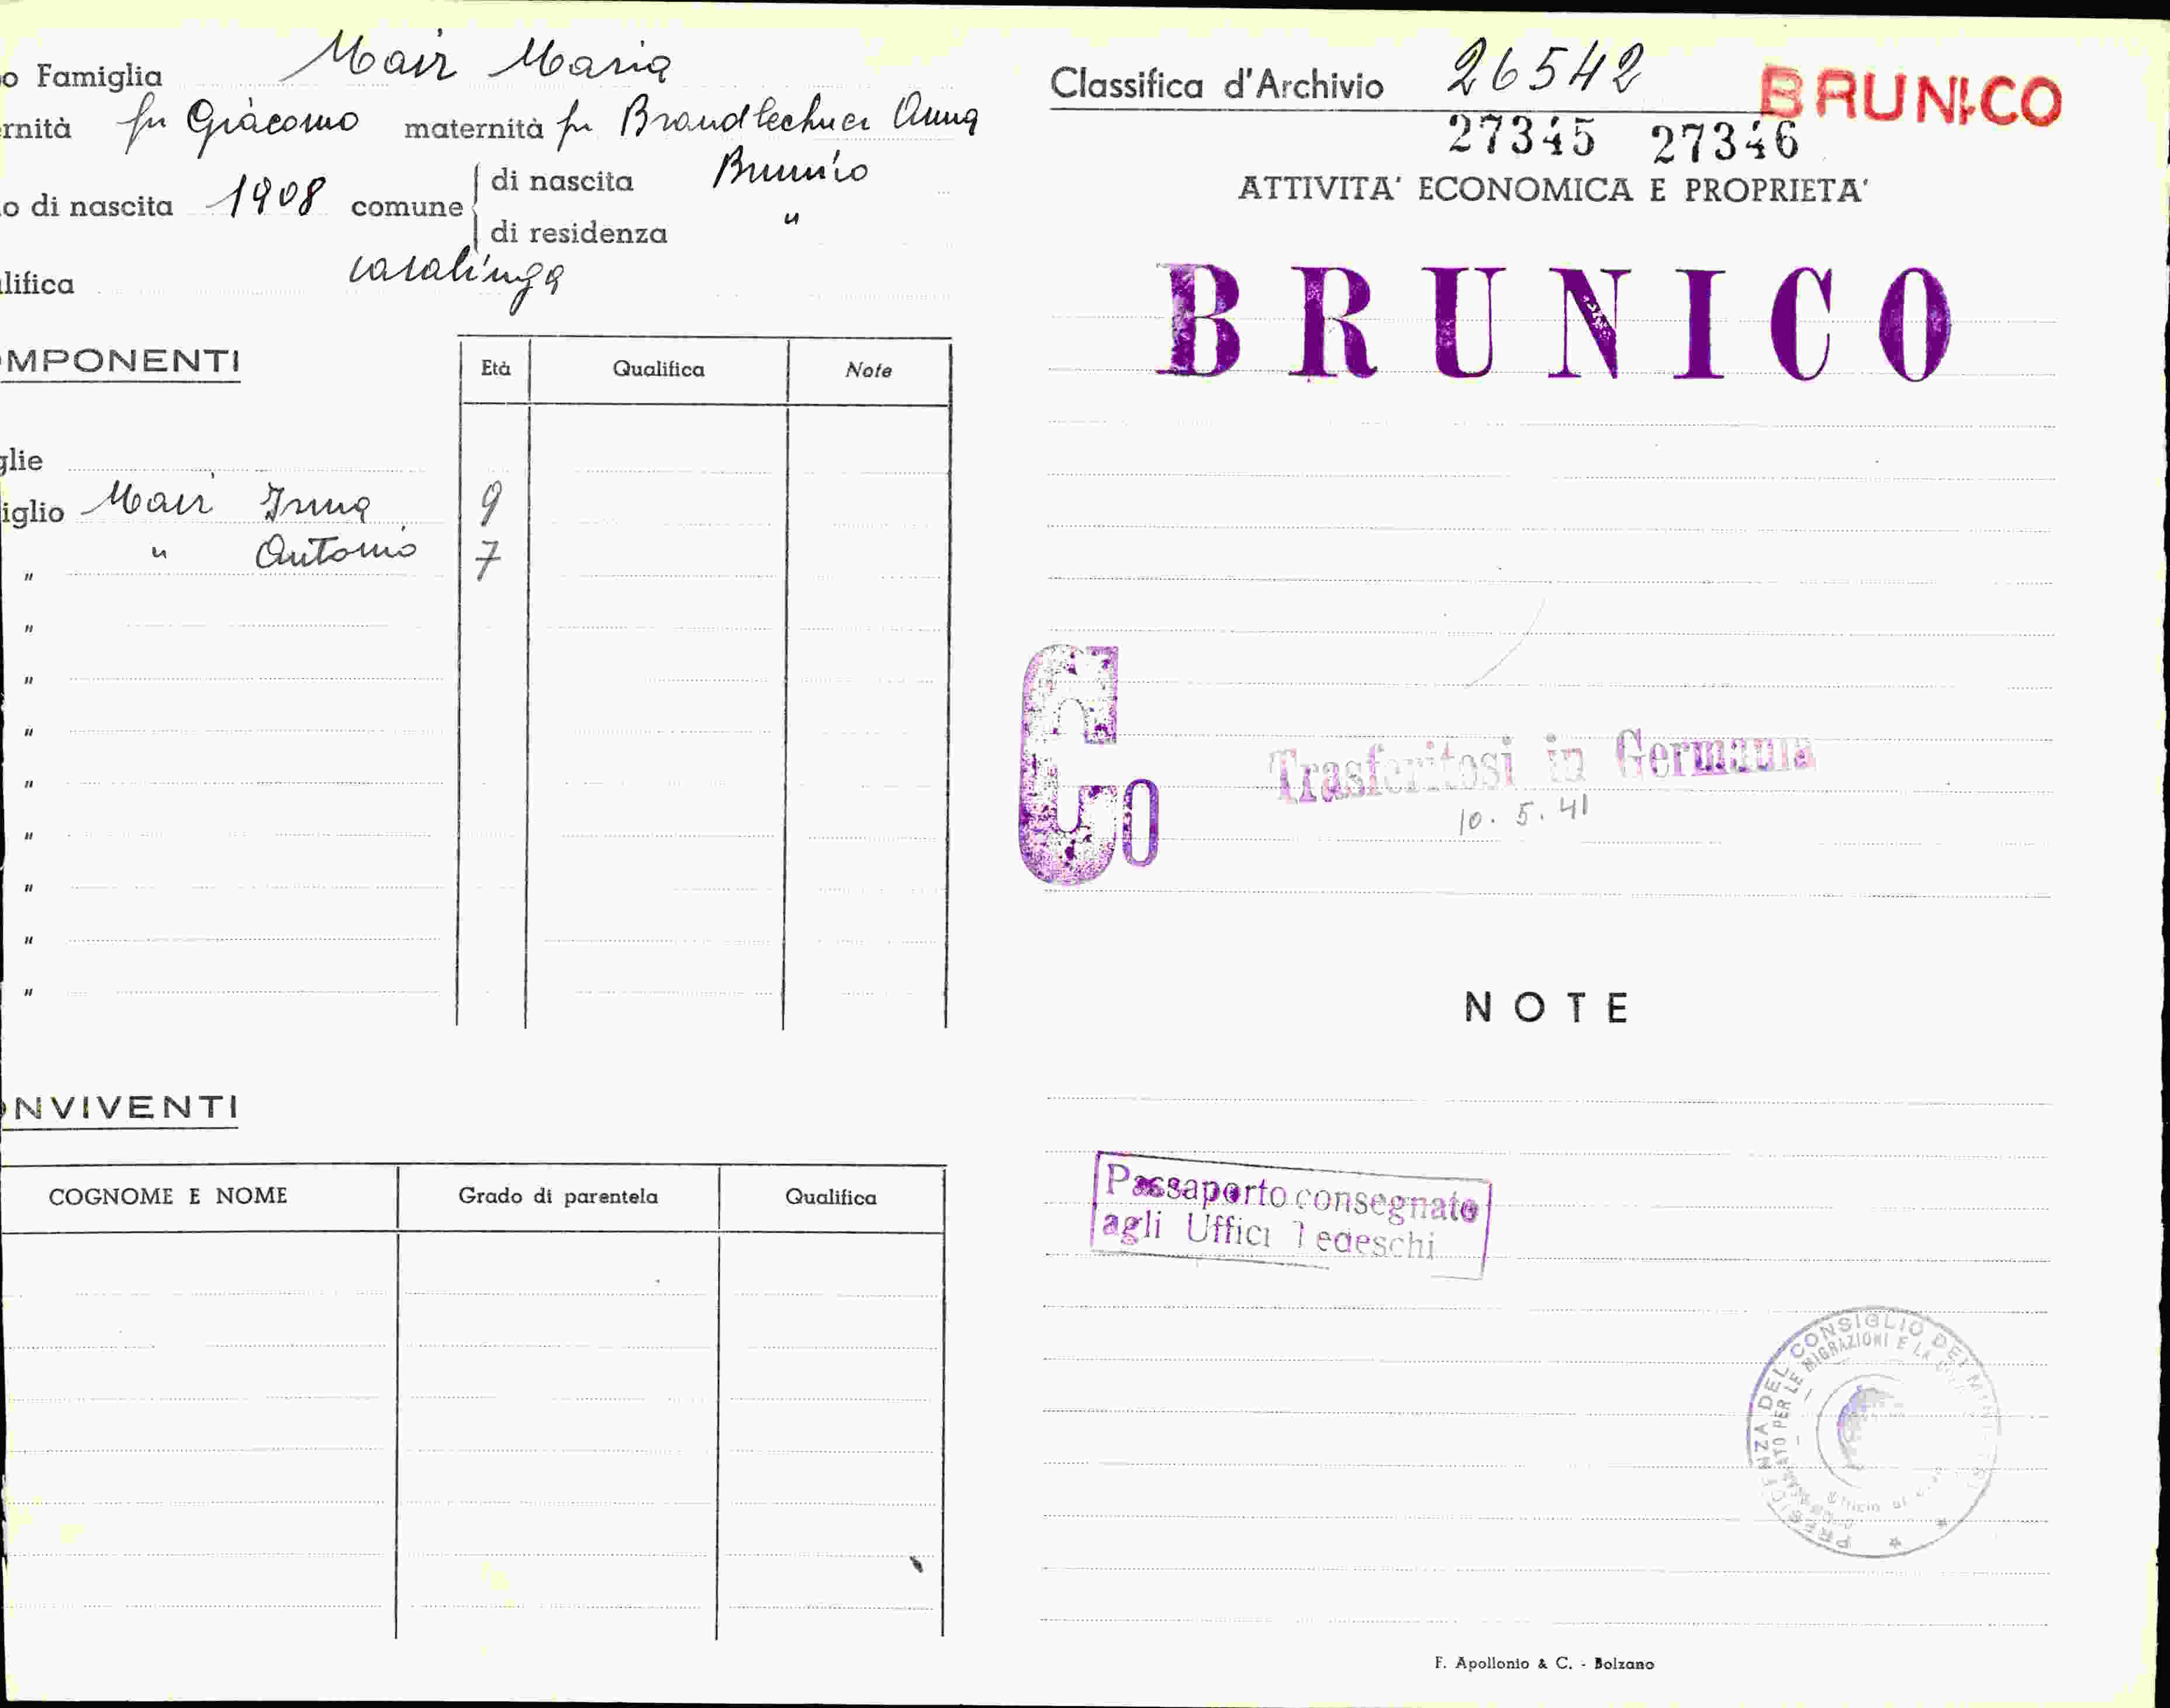 o Famiglia Mair Maria
rnità fu Giacomo maternità fu Brandlechner Anna
o di nascita 1908 comune di nascita Brunico
di residenza "
lifica casalinga
MPONENTI
Età Qualifica Note
glie
iglio Mair Irma 9
" " Antonio 7
"
"
"
"
"
"
"
"
NVIVENTI
COGNOME E NOME Grado di parentela Qualifica
Classifica d'Archivio 26542 BRUNICO
27345 27346
ATTIVITA' ECONOMICA E PROPRIETA'
BRUNICO
Co
Trasferitosi in Germania
10. 5. 41
NOTE
Passaporto consegnato
agli Uffici Tedeschi
PRESIDENZA DEL CONSIGLIO DEI
PER LE MIGRAZIONI E LA
Ufficio
F. Apollonio & C. - Bolzano